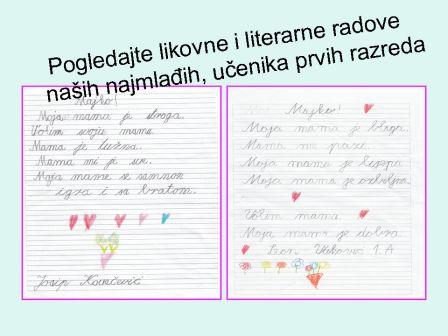 Pogledajte likovne i literarne radove
naših najmlađih, učenika prvih razreda
Majko!
Moja mama je stroga.
Volim svoju mamu.
Mama je tužna.
Mama mi je sve.
Moja mama se samnom
igra i sa bratom.
Josip Kovačević
Majko!
Moja mama je blaga.
Mama me pazi.
Moja mama je lijepa
Moja mama je ozbiljna.
Volim mamu
Moja mama je dobra
Leon 1.A